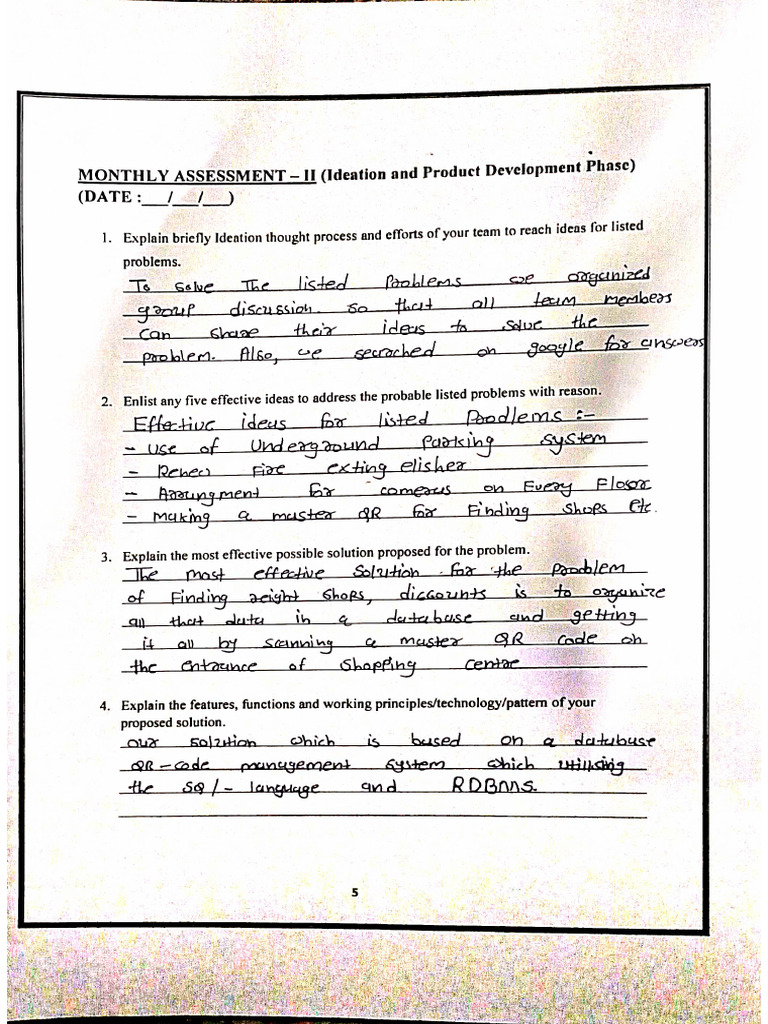 MONTHLY ASSESSMENT – II (Ideation and Product Development Phase)
(DATE :___/___/___)
1. Explain briefly Ideation thought process and efforts of your team to reach ideas for listed
problems.
To solve The listed Problems we organized
group discussion. so that all team members
Can share their ideas to solve the
problem. Also, we secrached on google for answers
2. Enlist any five effective ideas to address the probable listed problems with reason.
Effective ideas for listed Proodlems :-
- use of Underground Parking system
- Renew Fire exting elisher
- Arrungment for comerus on Every Floser
- Making a master QR for Finding Shops etc.
3. Explain the most effective possible solution proposed for the problem.
The most effective Solution for the Problem
of Finding reight Shops, discounts is to organize
all that data in a database and getting
it all by scanning a master QR Code on
the entrance of Shopping centre
4. Explain the features, functions and working principles/technology/pattern of your
proposed solution.
our solution which is bused on a datubuse
QR-code management system which utilising
the SQl- language and RDBMS.
5